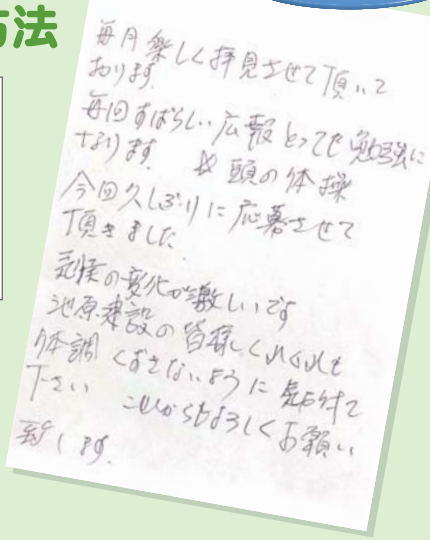 方法
毎月楽しく拝見させて頂いて
おります
毎回すばらしい広報とっても勉強に
なります 頭の体操
今回久しぶりに応募させて
頂きました
気候の変化が激しいです
池原建設の皆様くれぐれも
体調くずさないように気を付て
下さい これからもよろしくお願い
致します。